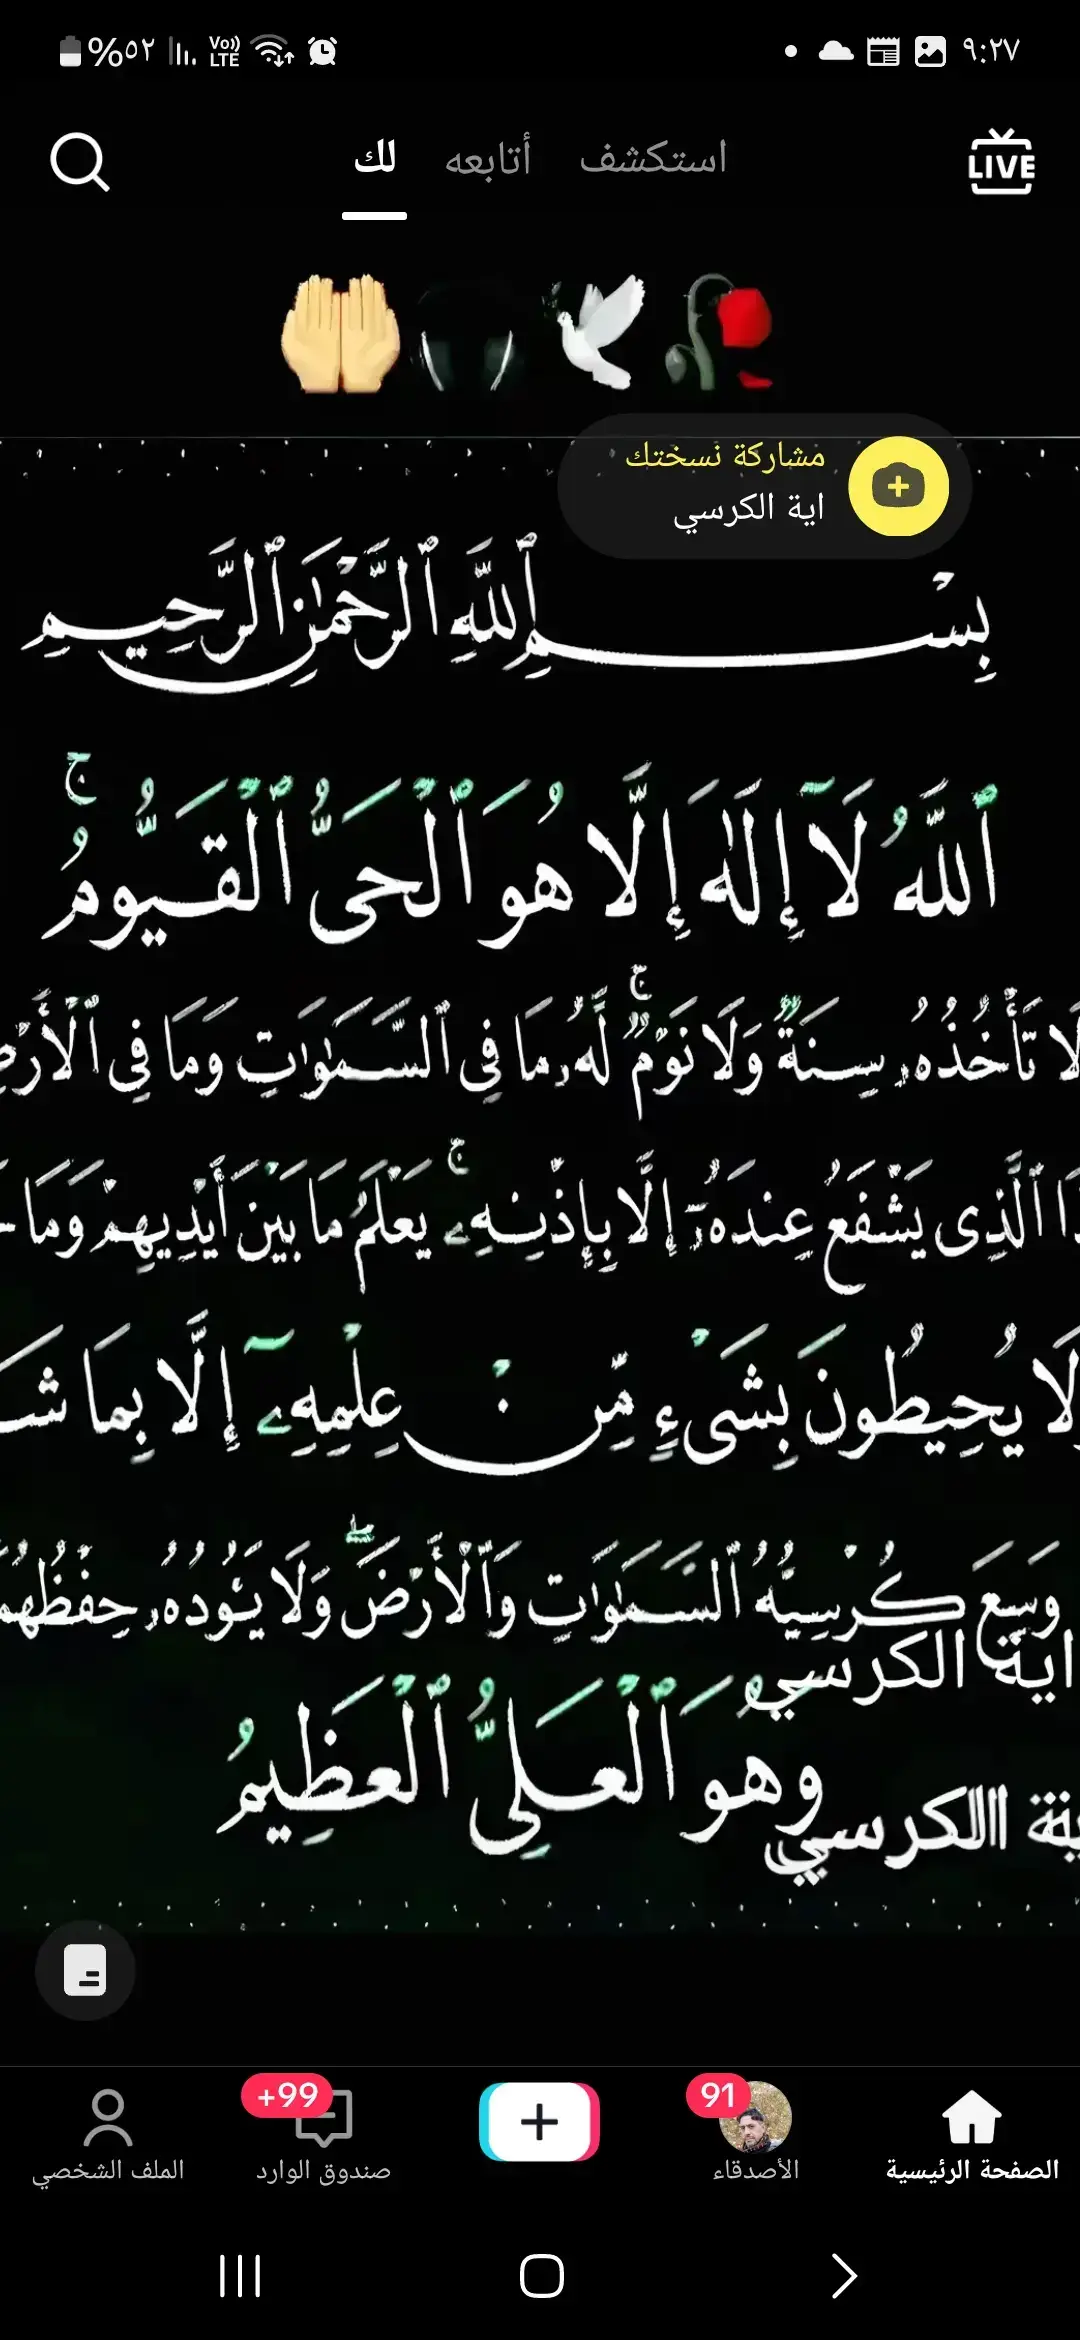 ٩:٢٧ Vo)) LTE %٥٢
LIVE استكشف أتابعه لك
مشاركة نسختك
اية الكرسي
بِسْمِ ٱللَّهِ ٱلرَّحْمَٰنِ ٱلرَّحِيمِ
ٱللَّهُ لَآ إِلَٰهَ إِلَّا هُوَ ٱلْحَىُّ ٱلْقَيُّومُ ۚ
لَا تَأْخُذُهُۥ سِنَةٌ وَلَا نَوْمٌ ۚ لَّهُۥ مَا فِى ٱلسَّمَٰوَٰتِ وَمَا فِى ٱلْأَرْضِ
ٱلَّذِى يَشْفَعُ عِندَهُۥٓ إِلَّا بِإِذْنِهِۦ ۚ يَعْلَمُ مَا بَيْنَ أَيْدِيهِمْ وَمَا
وَلَا يُحِيطُونَ بِشَىْءٍ مِّنْ عِلْمِهِۦٓ إِلَّا بِمَا
وَسِعَ كُرْسِيُّهُ ٱلسَّمَٰوَٰتِ وَٱلْأَرْضَ ۖ وَلَا يَـُٔودُهُۥ حِفْظُهُمَا
اية الكرسي
وَهُوَ ٱلْعَلِىُّ ٱلْعَظِيمُ
الصفحة الرئيسية
91 الأصدقاء
+99 صندوق الوارد
الملف الشخصي